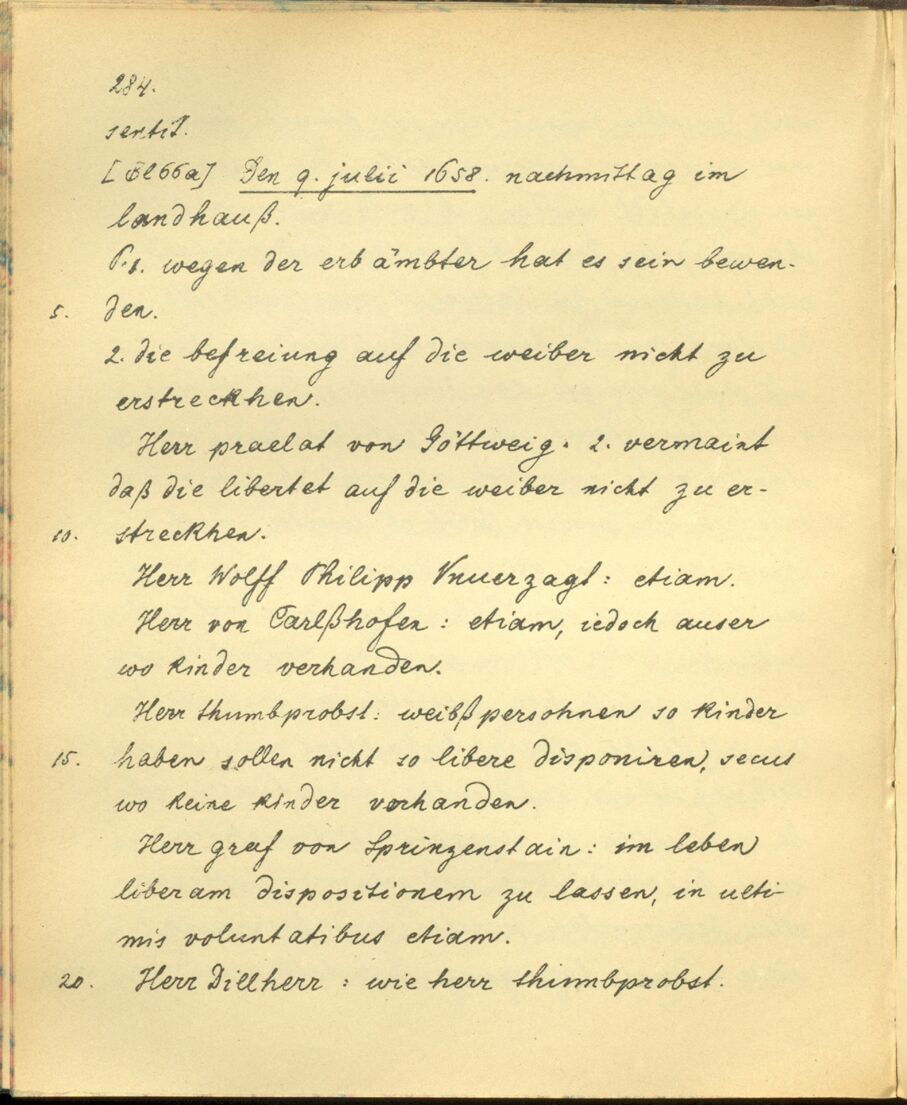 284.
sentit.
[Bl 66a] Den 9. julii 1658. nachmittag im
landhauß.
P.1. wegen der erb ämbter hat es sein bewen-
5. den.
2. die befreiung auf die weiber nicht zu
erstreckhen.
Herr praelat von Göttweig. 2. vermaint
daß die libertet auf die weiber nicht zu er-
10. streckhen.
Herr Wolff Philipp Vnuerzagt: etiam.
Herr von Carlßhofen: etiam, iedoch auser
wo kinder verhanden.
Herr thumbprobst: weibßpersohnen so kinder
15. haben sollen nicht so libere disponiren, secus
wo keine kinder verhanden.
Herr graf von Sprinzenstain: im leben
liberam dispositionem zu lassen, in ulti-
mis voluntatibus etiam.
20. Herr Dillherr: wie herr thumbprobst.